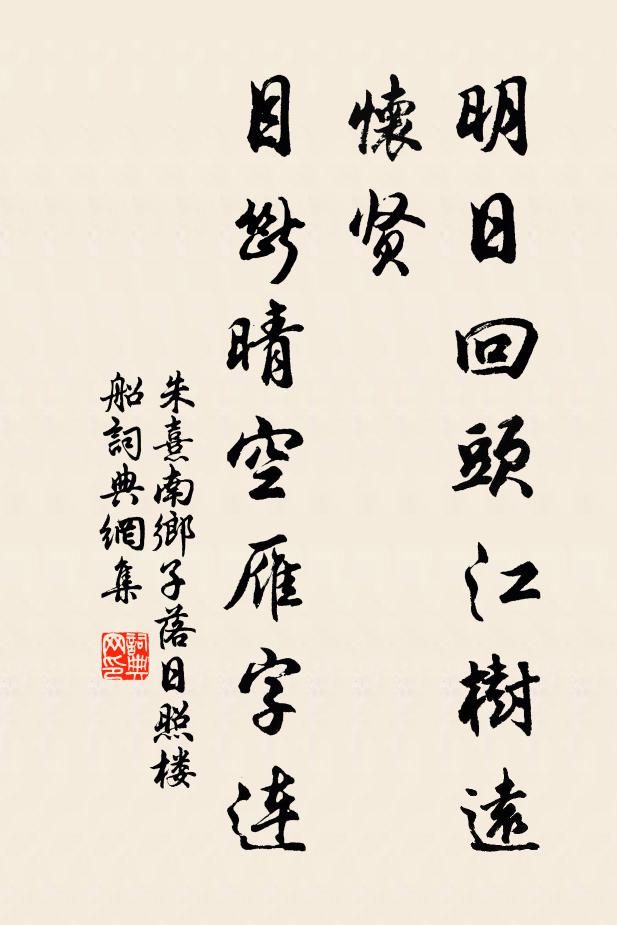 明日回頭江樹遠
懷贤
目斷晴空雁字連
朱熹南鄉子落日照楼
船詞典網集
詞典网印